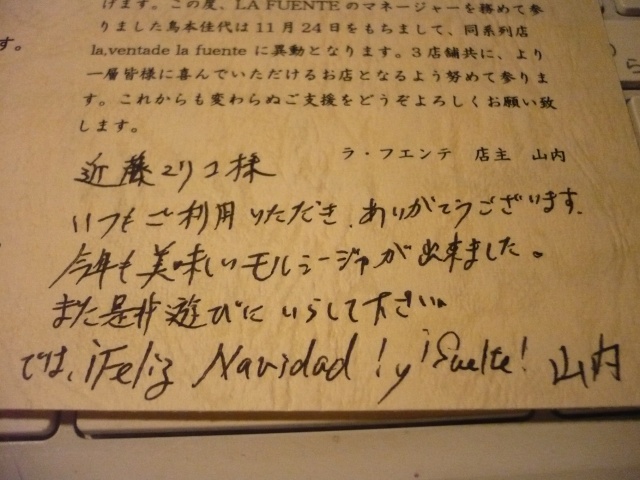 げます。この度、LA FUENTE のマネージャーを務めて参
りました鳥本佳代は 11 月 24 日をもちまして、同系列店
la,ventade la fuente に異動となります。3 店舗共に、より
一層皆様に喜んでいただけるお店となるよう努めて参りま
す。これからも変わらぬご支援をどうぞよろしくお願い致
します。
ラ・フエンテ 店主 山内
近藤マリコ様
いつもご利用いただき、ありがとうございます。
今年も美味しいモルシージャが出来ました。
また是非遊びにいらして下さい。
では、¡Feliz Navidad! y ¡Suelte! 山内
す。
ら